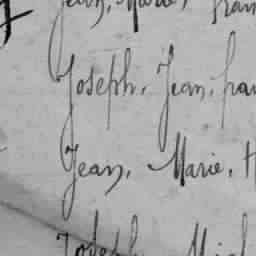 Jean, Marie,
Joseph, Jean, fra
Jean, Marie, H
Joseph